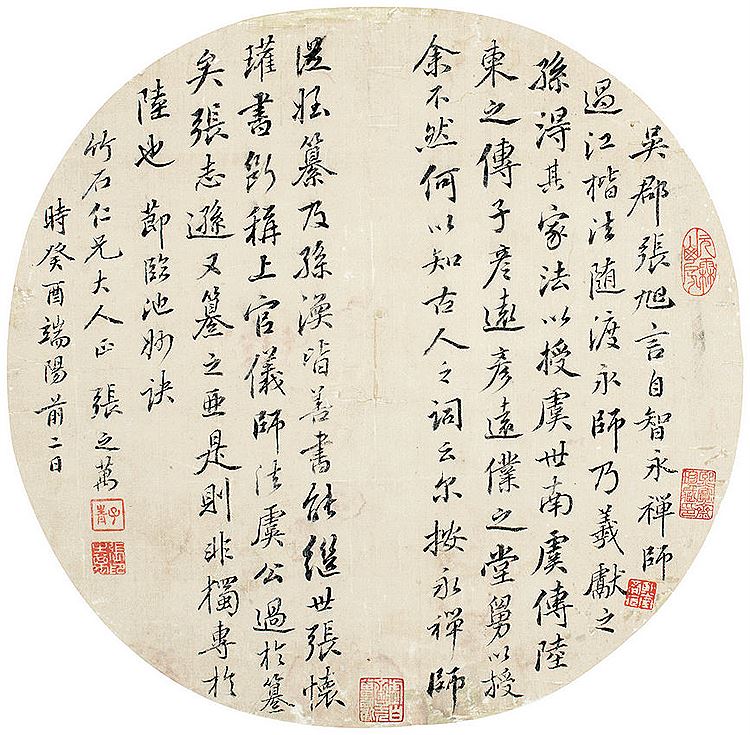 吳郡張旭言自智永禪師
過江楷法隨渡永師乃羲獻之
孫得其家法以授虞世南虞傳陸
柬之傳子彥遠彥遠僕之堂舅以授
余不然何以知古人之詞云尓按永禪師
從姪纂及孫渙皆善書能繼世張懷
瓘書斷稱上官儀師法虞公過於纂
矣張志遜又纂之亞是則非獨專於
陸也 節臨池妙訣
竹石仁兄大人正 張之萬
時癸酉端陽前二日